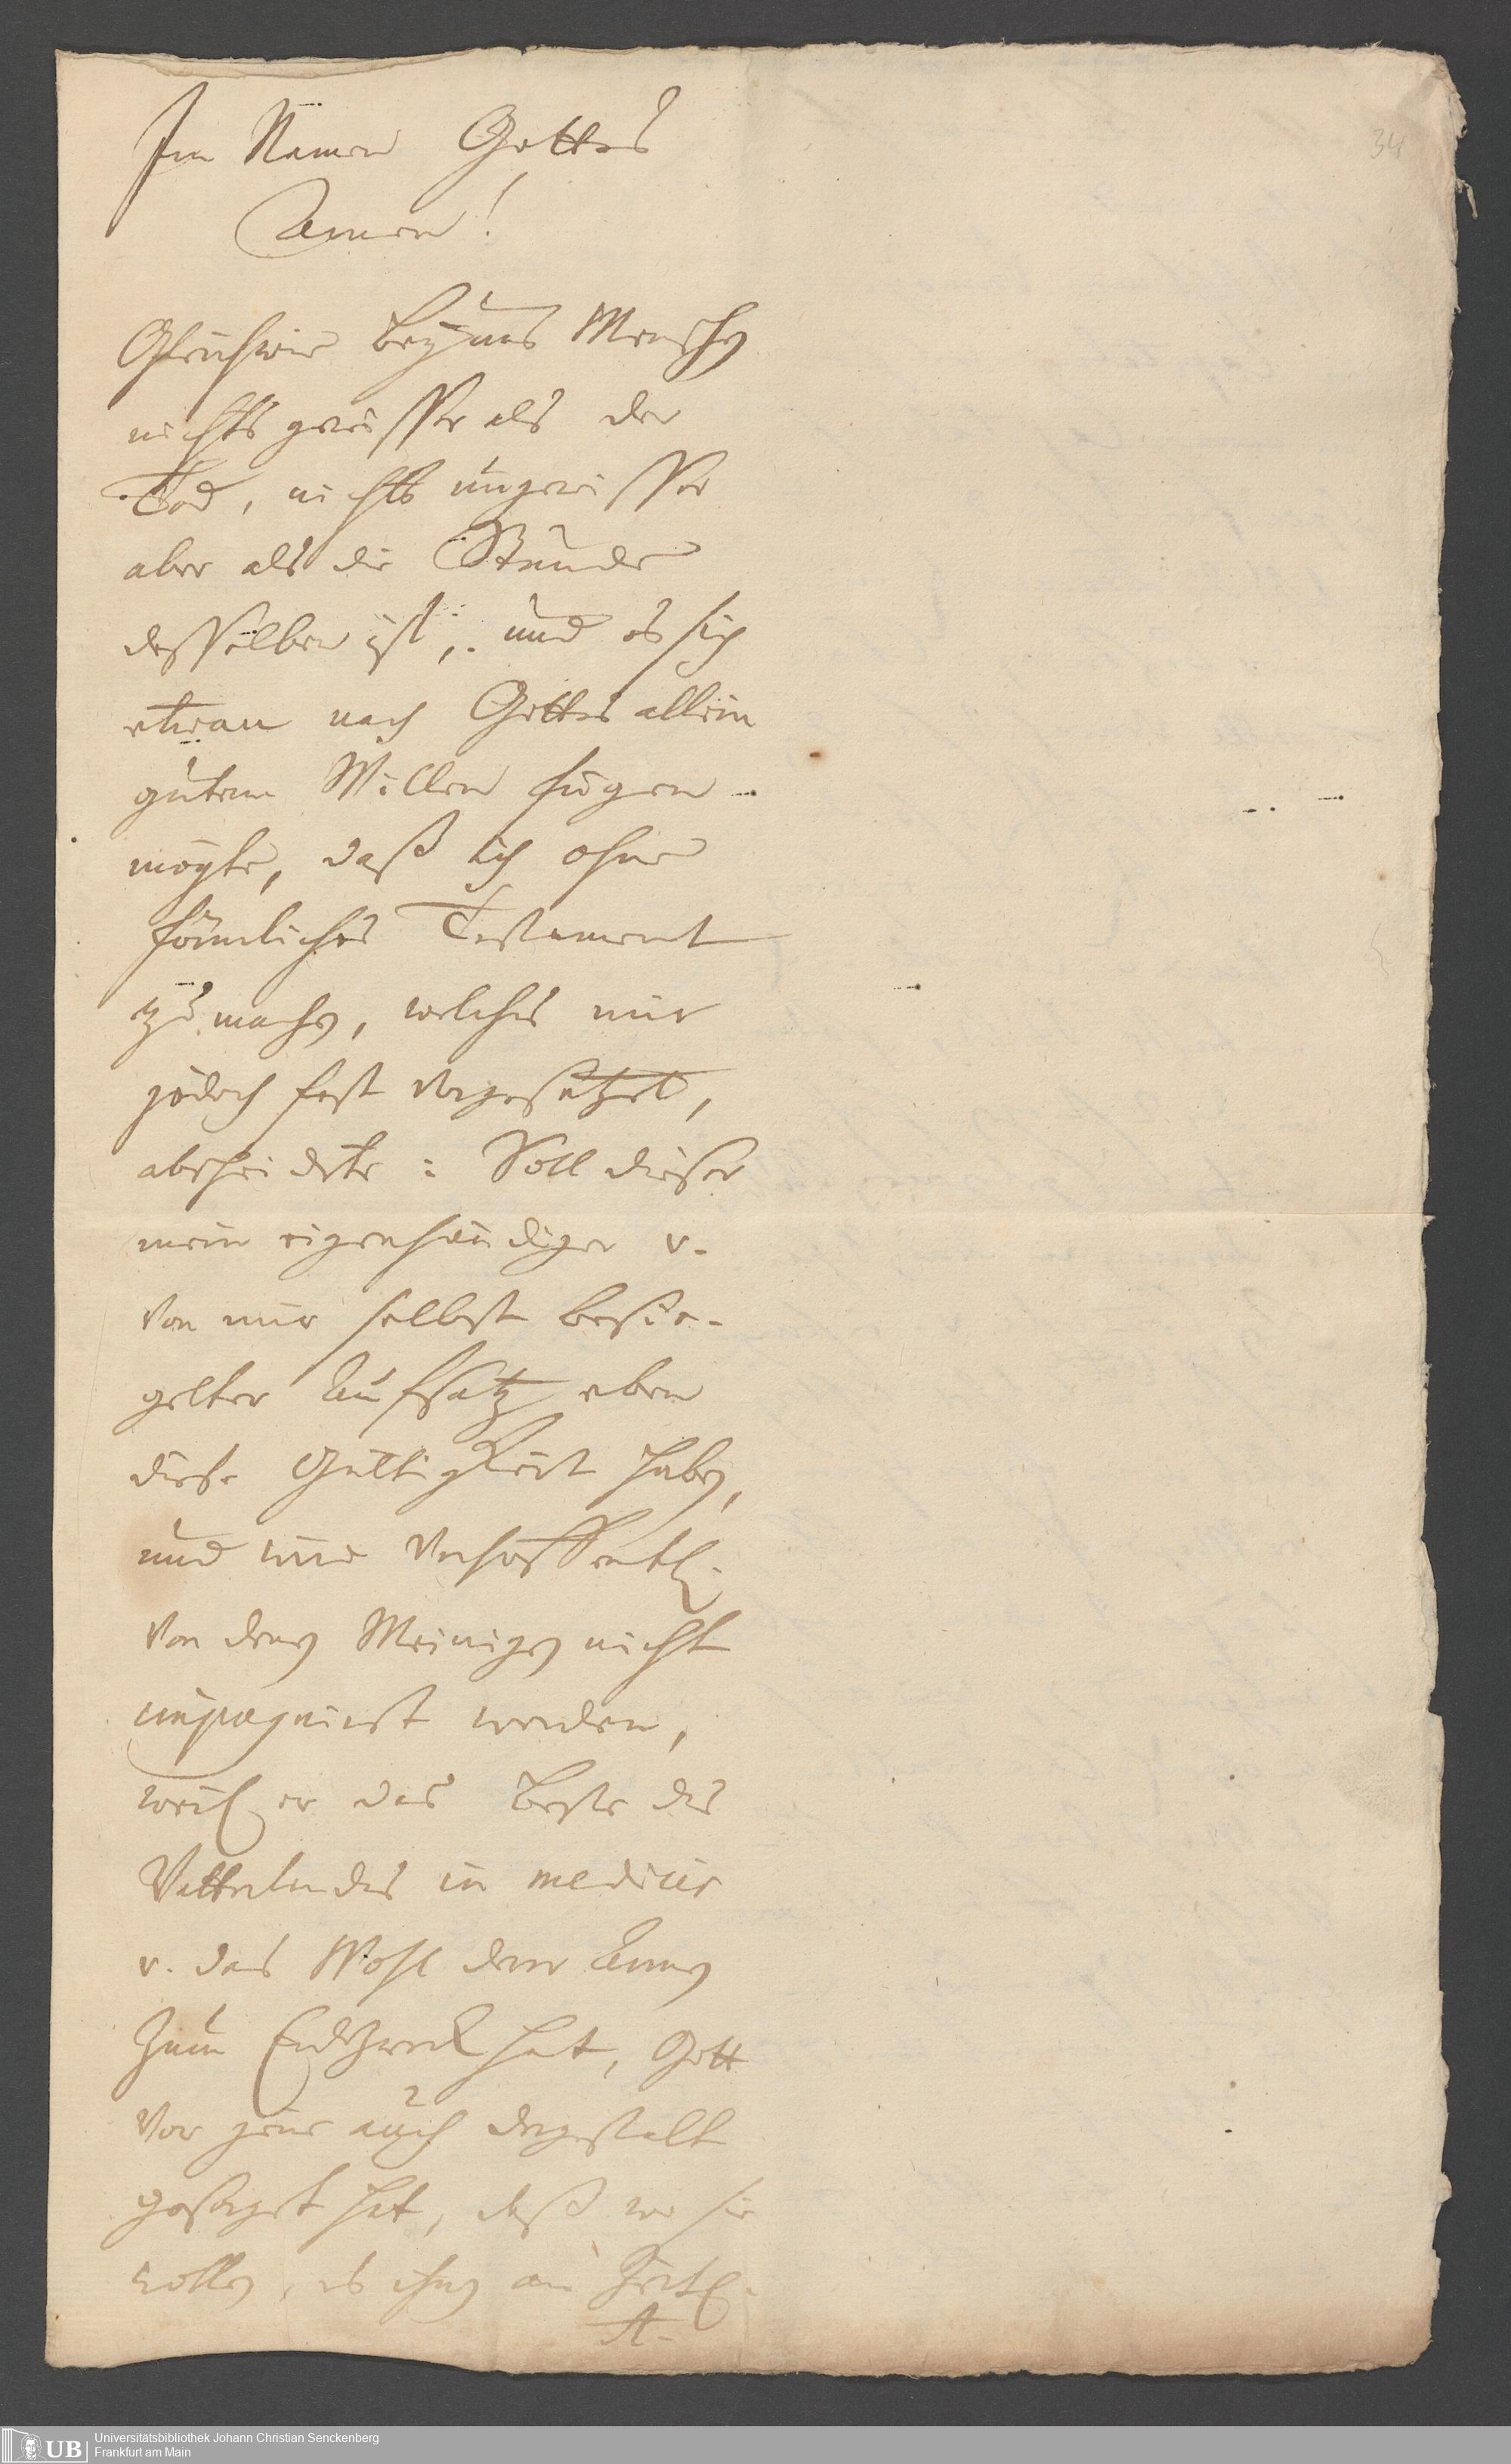 34
Im Namen Gottes
Amen!
Gleichwie bey uns Menschen
nichts gewisser als der
Tod, nichts ungewisser
aber als die Stunde
desselben ist, und es sich
etwan nach Gottes allein
gutem Willen fügen
mögte, daß ich ohne
förmliches Testament
zu machen, welches mir
jedoch fest vorgesetzet,
abscheidete: Soll dieser
mein eigenhändiger v.
von mir selbst besie-
gelter Aufsatz eben
diese Gültigkeit haben,
und wie verhoffentl.
von denen Meinigen nicht
impugnirt werden,
weil er das Beste des
Vatterlandes in medicis
v. das Wohl derer Armen
zum Endzweck hat, Gott
vor jene auch dergestalt
gesorget hat, daß wo sie
wollen, es ihnen an Zeitl.
A-
UB
Universitätsbibliothek Johann Christian Senckenberg
Frankfurt am Main